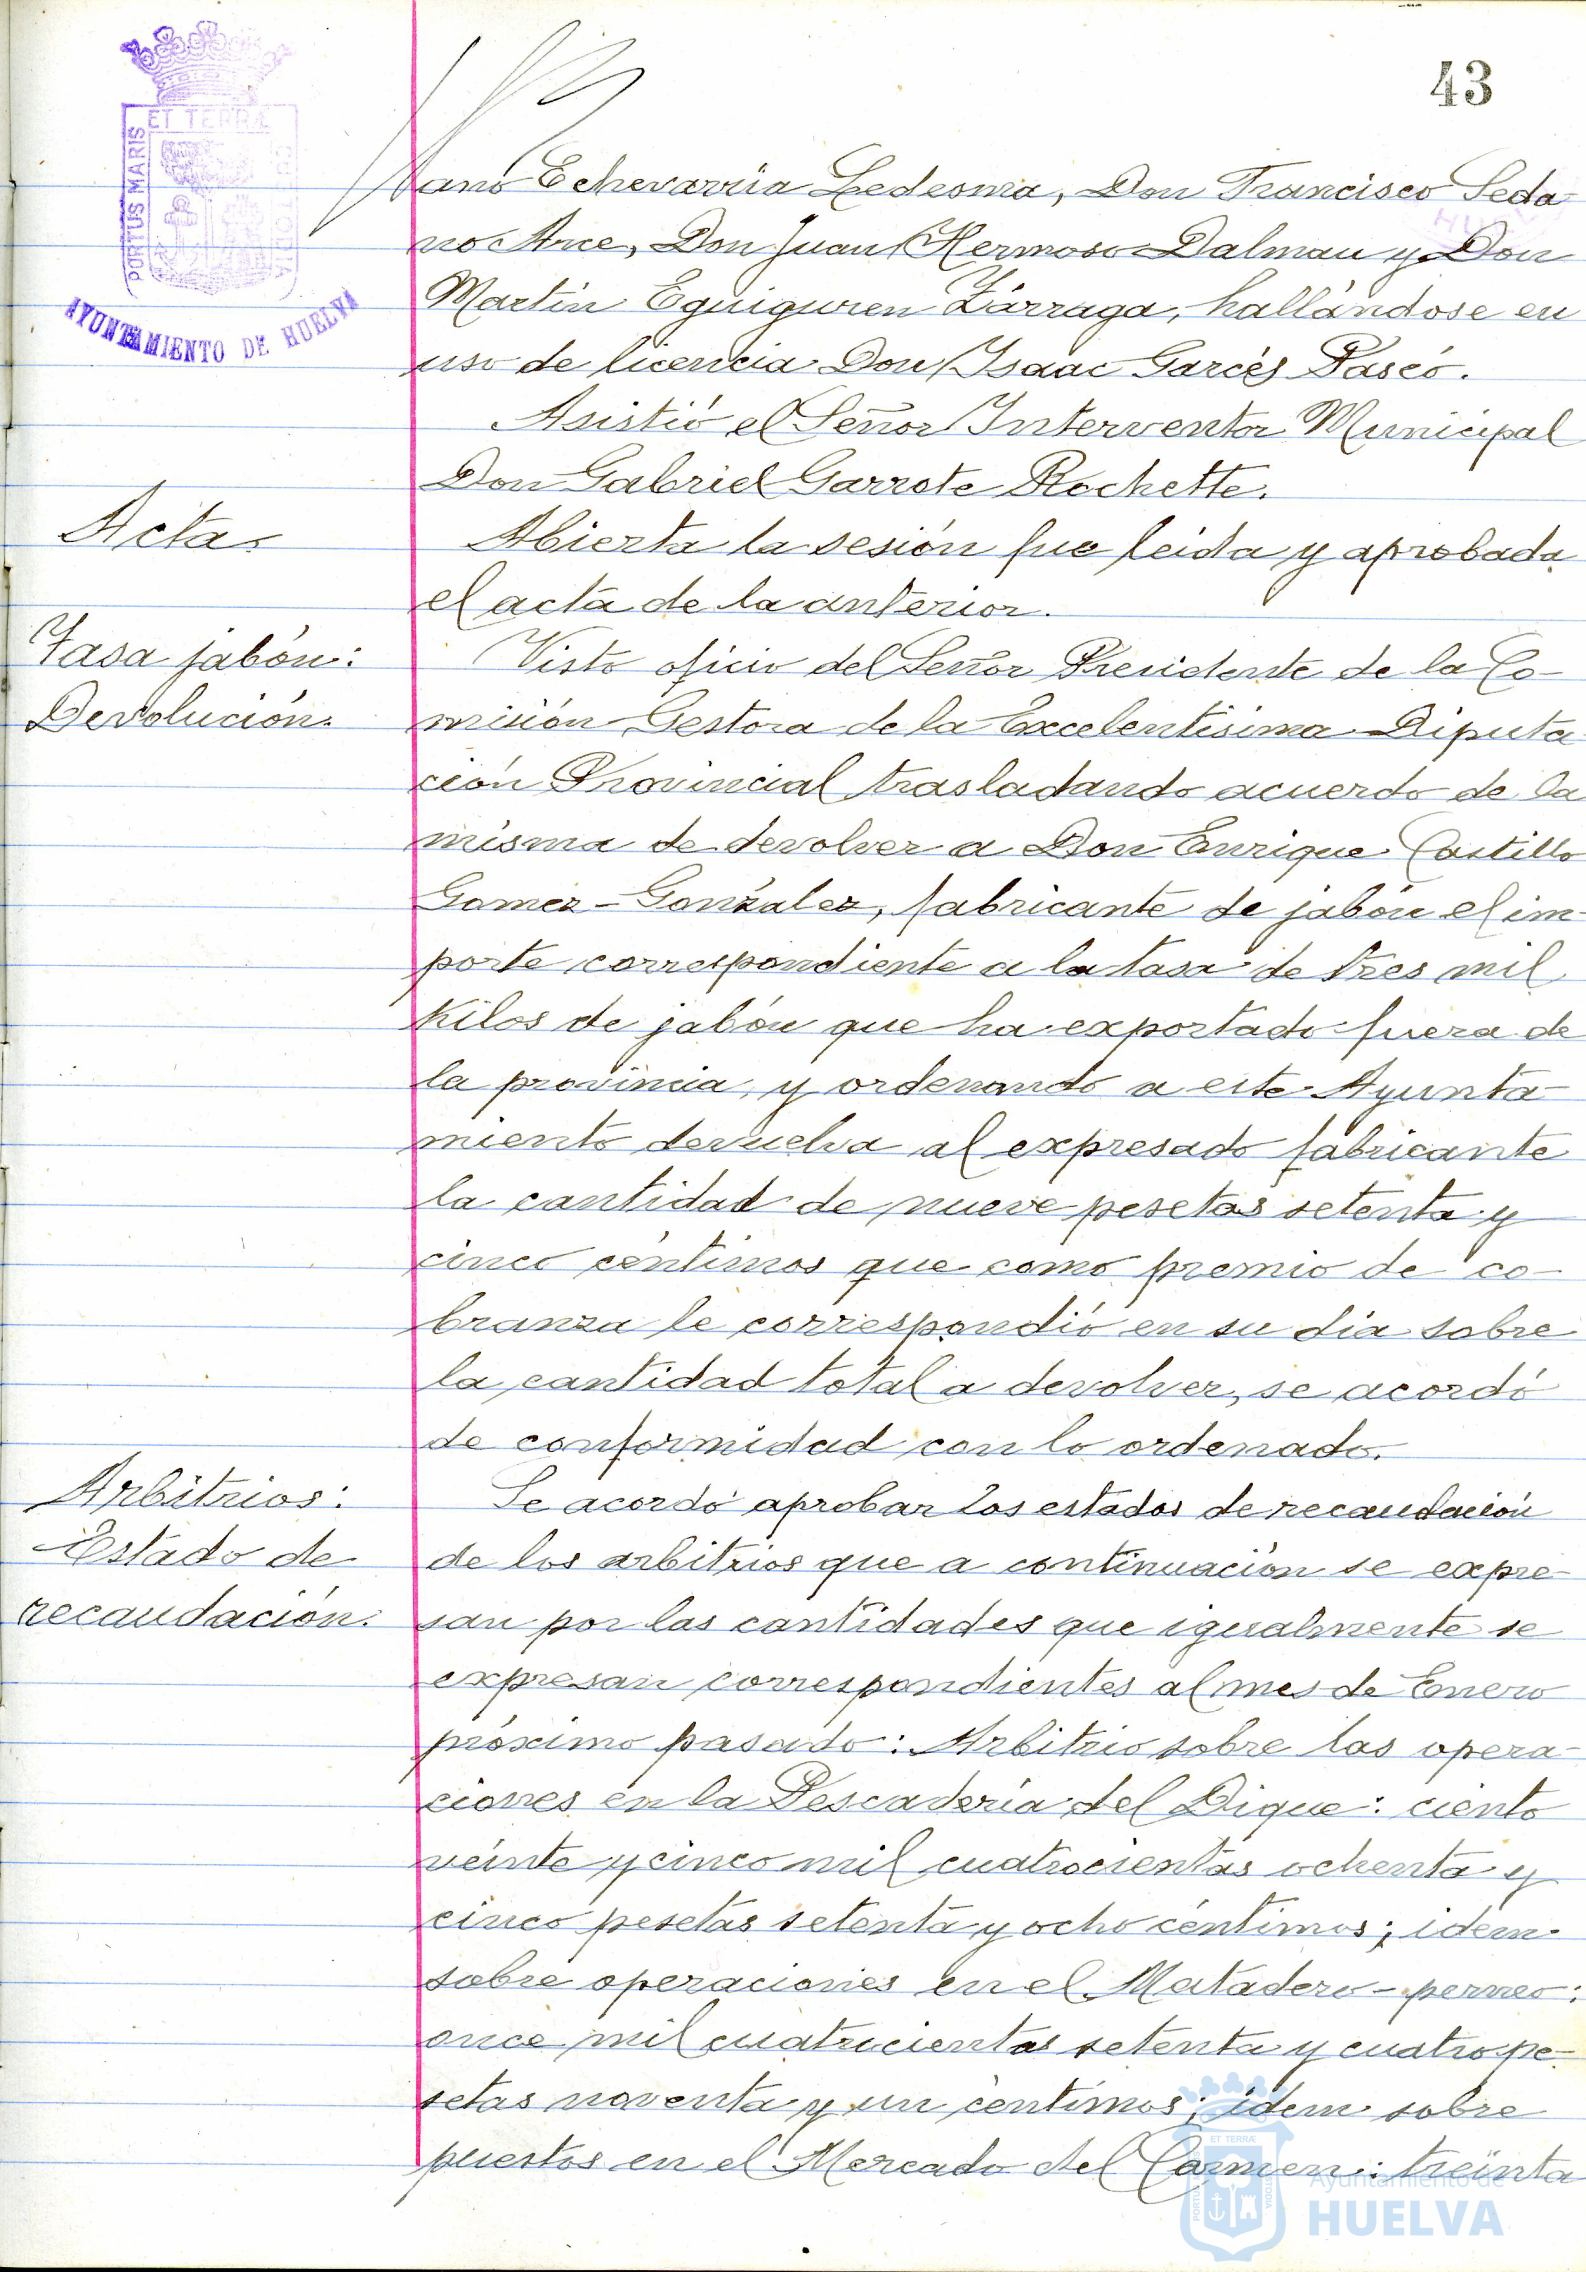 43
ET TERRÆ
PORTUS MARIS
AYUNTAMIENTO DE HUELVA
ano Echevarría Ledesma, Don Francisco Seda-
no Arce, Don Juan Hermoso Dalmau y Don
Martín Eguiguren Zárraga, hallándose en
uso de licencia Don Isaac Garcés Pascó.
Asistió el Señor Interventor Municipal
Don Gabriel Garrote Rochette.
Acta.
Abierta la sesión fue leida y aprobada
el acta de la anterior.
Tasa jabón:
Devolución.
Visto oficio del Señor Presidente de la Co-
misión Gestora de la Excelentísima Diputa-
ción Provincial trasladando acuerdo de la
misma de devolver a Don Enrique Castillo
Gomez-González, fabricante de jabón el im-
porte correspondiente a la tasa de tres mil
kilos de jabón que ha exportado fuera de
la provincia, y ordenando a este Ayunta-
miento devuelva al expresado fabricante
la cantidad de nueve pesetas setenta y
cinco céntimos que como premio de co-
branza le correspondió en su dia sobre
la cantidad total a devolver, se acordó
de conformidad con lo ordenado.
Arbitrios:
Estado de
recaudación.
Se acordó aprobar los estados de recaudación
de los arbitrios que a continuación se expre-
san por las cantidades que igualmente se
expresan correspondientes al mes de Enero
próximo pasado: Arbitrio sobre las opera-
ciones en la Pescadería del Dique: ciento
veinte y cinco mil cuatrocientas ochenta y
cinco pesetas setenta y ocho céntimos; idem
sobre operaciones en el Matadero-perneo:
once mil cuatrocientas setenta y cuatro pe-
setas noventa y un céntimos; idem sobre
puestos en el Mercado del Carmen: treinta
Ayuntamiento de
HUELVA